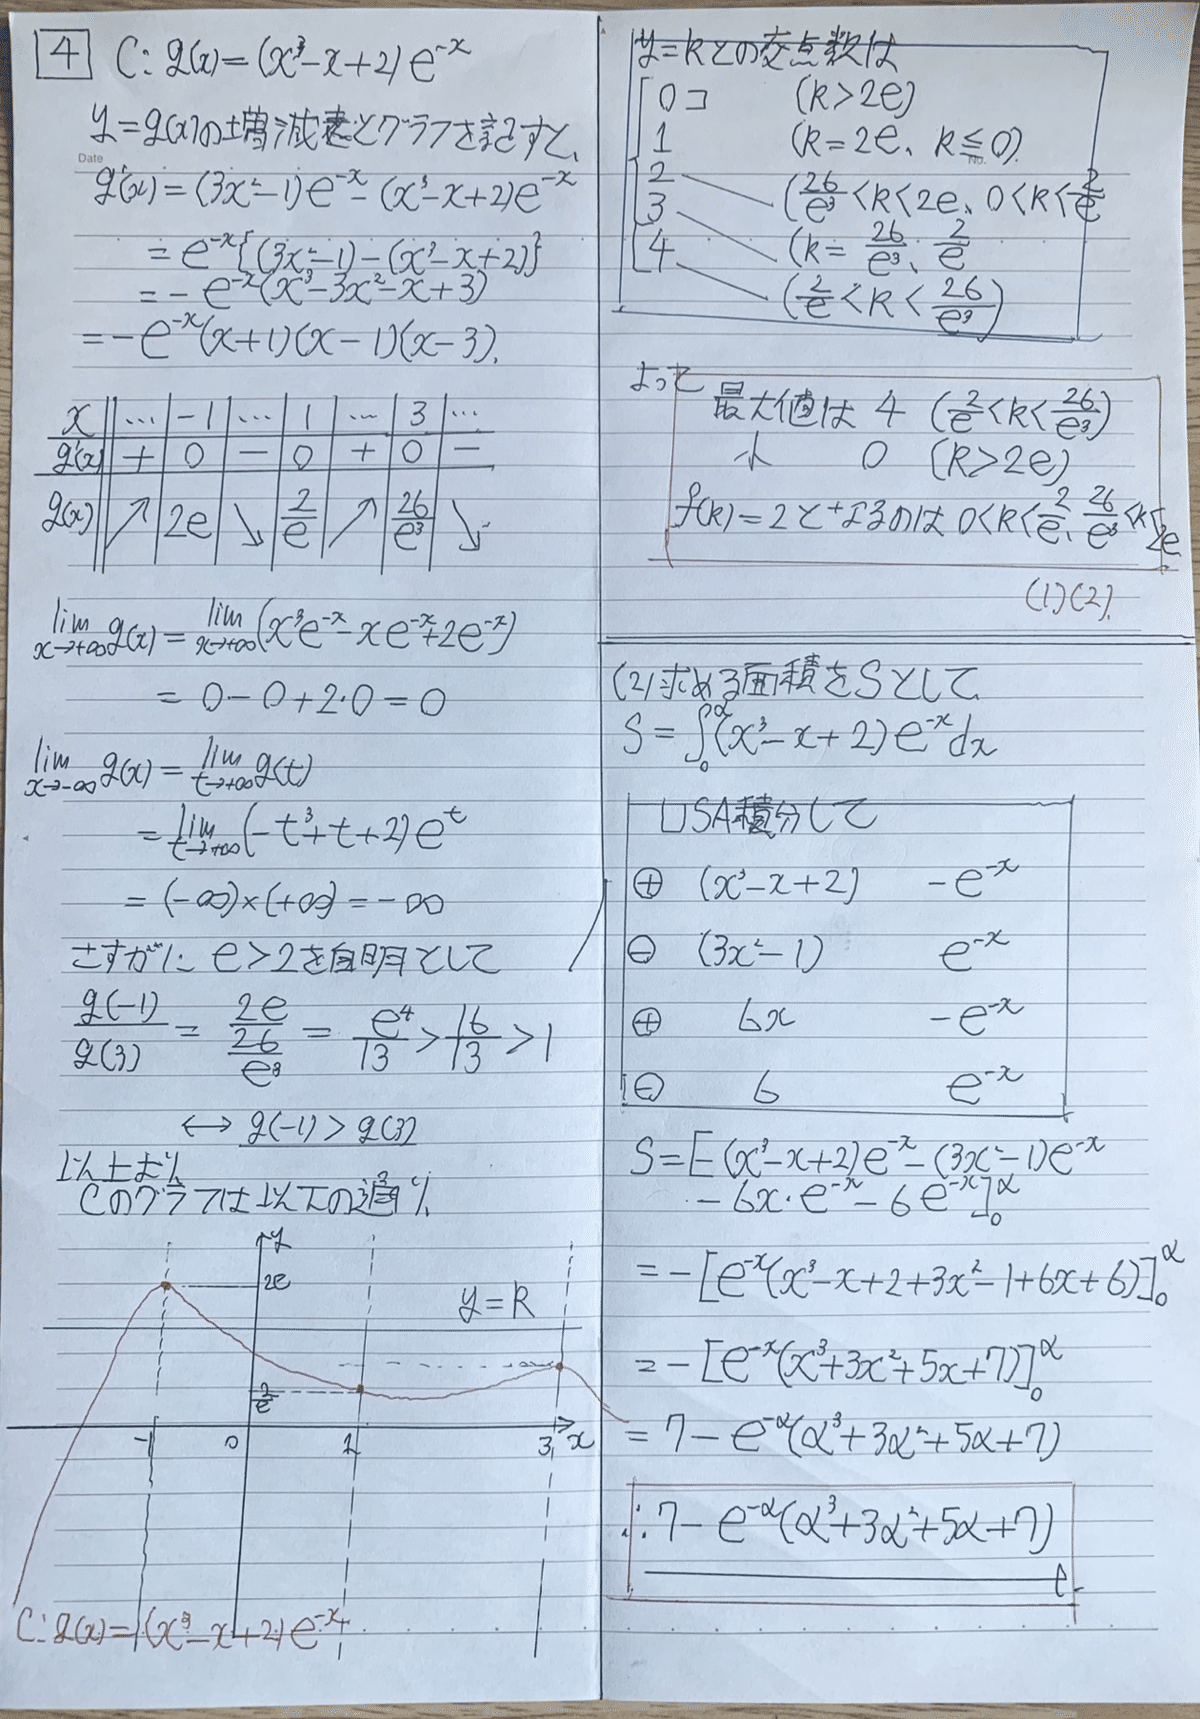 4 C: g(x) = (x³ - x + 2) e^{-x}
y = g(x)の増減表とグラフを記すと、
Date
g'(x) = (3x² - 1)e^{-x} - (x³ - x + 2)e^{-x}
= e^{-x}{(3x² - 1) - (x³ - x + 2)}
= -e^{-x}(x³ - 3x² - x + 3)
= -e^{-x}(x+1)(x-1)(x-3).
x … -1 … 1 … 3 …
g'(x) + 0 - 0 + 0 -
g(x) ↗ 2e ↘ 2/e ↗ 26/e³ ↘
lim_{x→+∞} g(x) = lim_{x→+∞} (x³e^{-x} - xe^{-x} + 2e^{-x})
= 0 - 0 + 2·0 = 0
lim_{x→-∞} g(x) = lim_{t→+∞} g(t)
= lim_{t→+∞} (-t³ + t + 2) e^t
= (-∞)×(+∞) = -∞
さすがに e > 2 を自明として
g(-1)/g(3) = 2e/(26/e³) = e⁴/13 > 16/13 > 1
↔ g(-1) > g(3)
以上より
Cのグラフは以下の通り
y
2e
y = k
2/e
-1 0 1 3 x
C: g(x) = (x³ - x + 2) e^{-x}
y = kとの交点数は
0コ (k > 2e)
1 (k = 2e、k ≦ 0)
No.
2 (26/e³ < k < 2e、0 < k < 2/e
3 (k = 26/e³、2/e
4 (2/e < k < 26/e³)
よって
最大値は 4 (2/e < k < 26/e³)
小 0 (k > 2e)
f(k) = 2となるのは 0 < k < 2/e、26/e³ < k < 2e
(1)(2).
(2) 求める面積をSとして
S = ∫₀^α (x³ - x + 2) e^{-x} dx
USA積分して
⊕ (x³ - x + 2) -e^{-x}
⊖ (3x² - 1) e^{-x}
⊕ 6x -e^{-x}
⊖ 6 e^{-x}
S = [-(x³ - x + 2)e^{-x} - (3x² - 1)e^{-x}
- 6x·e^{-x} - 6e^{-x}]₀^α
= -[e^{-x}(x³ - x + 2 + 3x² - 1 + 6x + 6)]₀^α
= -[e^{-x}(x³ + 3x² + 5x + 7)]₀^α
= 7 - e^{-α}(α³ + 3α² + 5α + 7)
∴ 7 - e^{-α}(α³ + 3α² + 5α + 7)